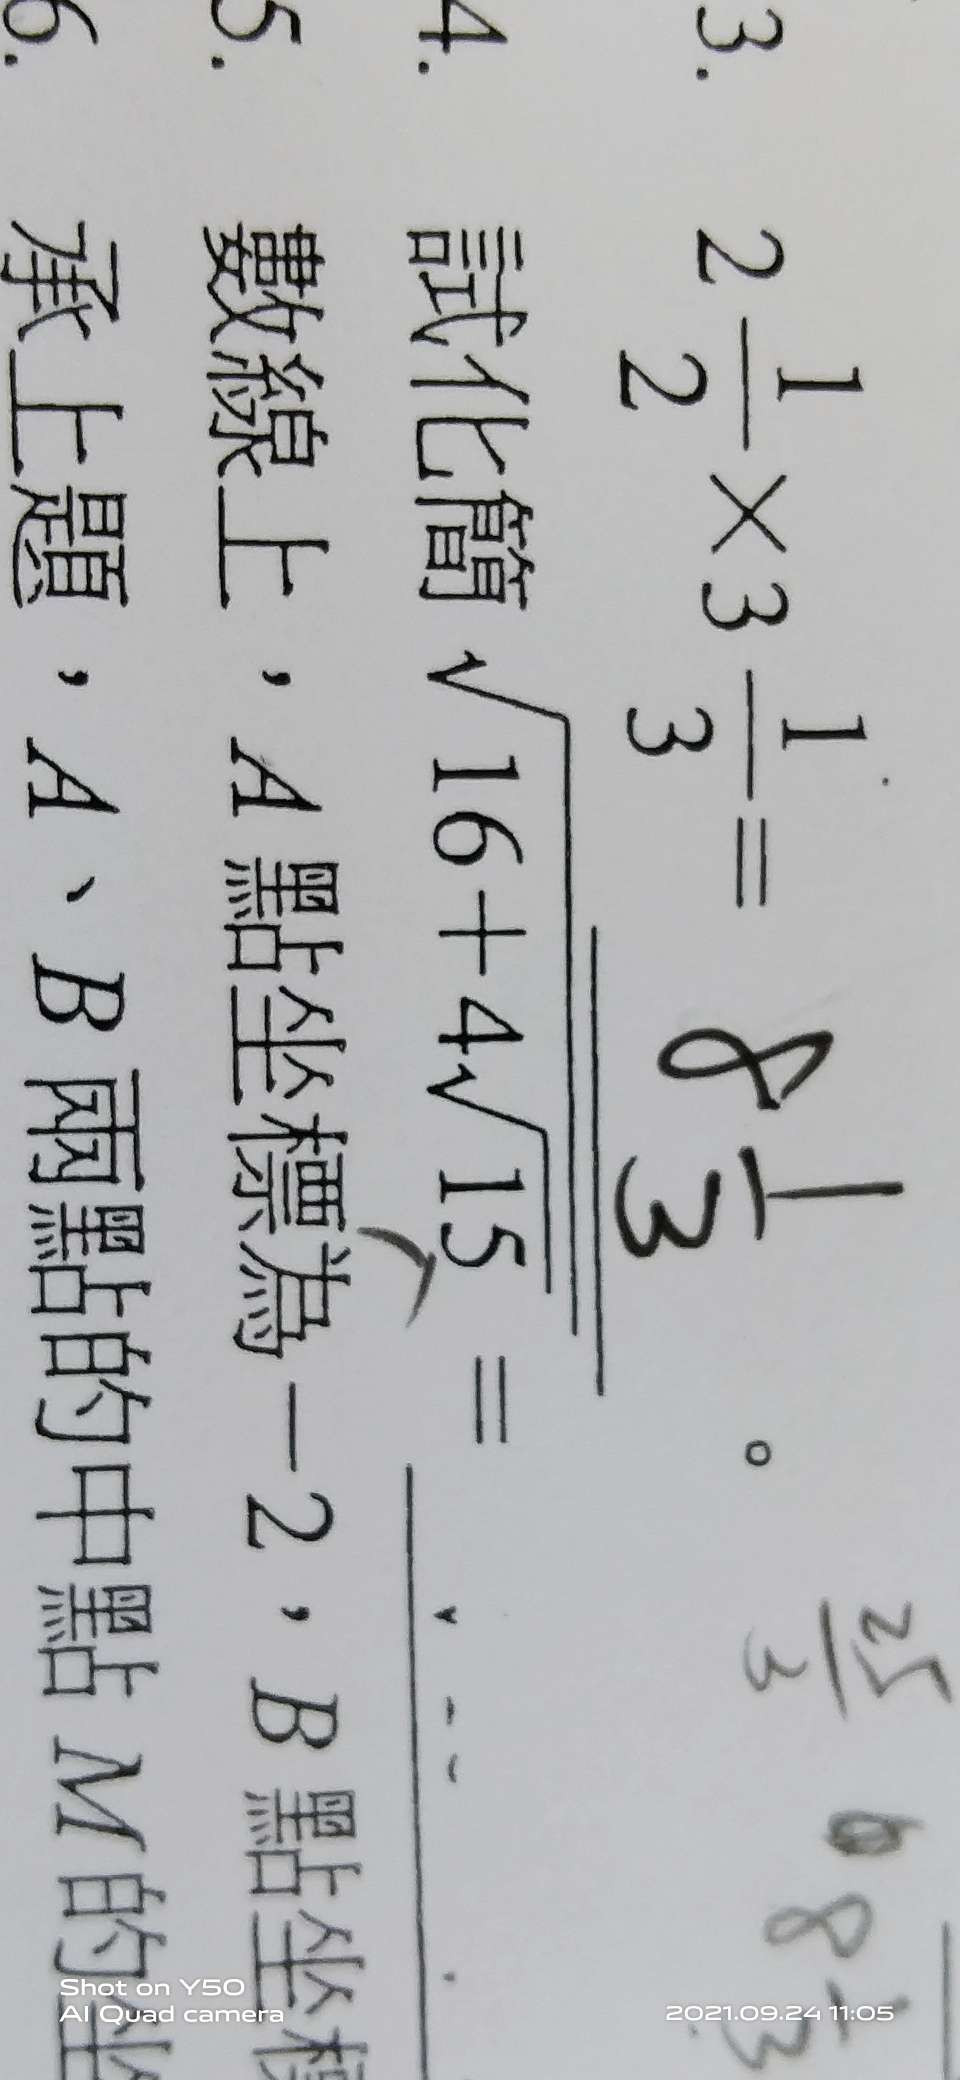 3. 2 1/2 × 3 1/3 = 8 1/3 。
25/3
8 1/3
4. 試化簡 √(16+4√15) =
5. 數線上，A 點坐標為 -2，B 點坐標
6. 承上題，A、B 兩點的中點 M 的坐
Shot on Y50
AI Quad camera
2021.09.24 11:05